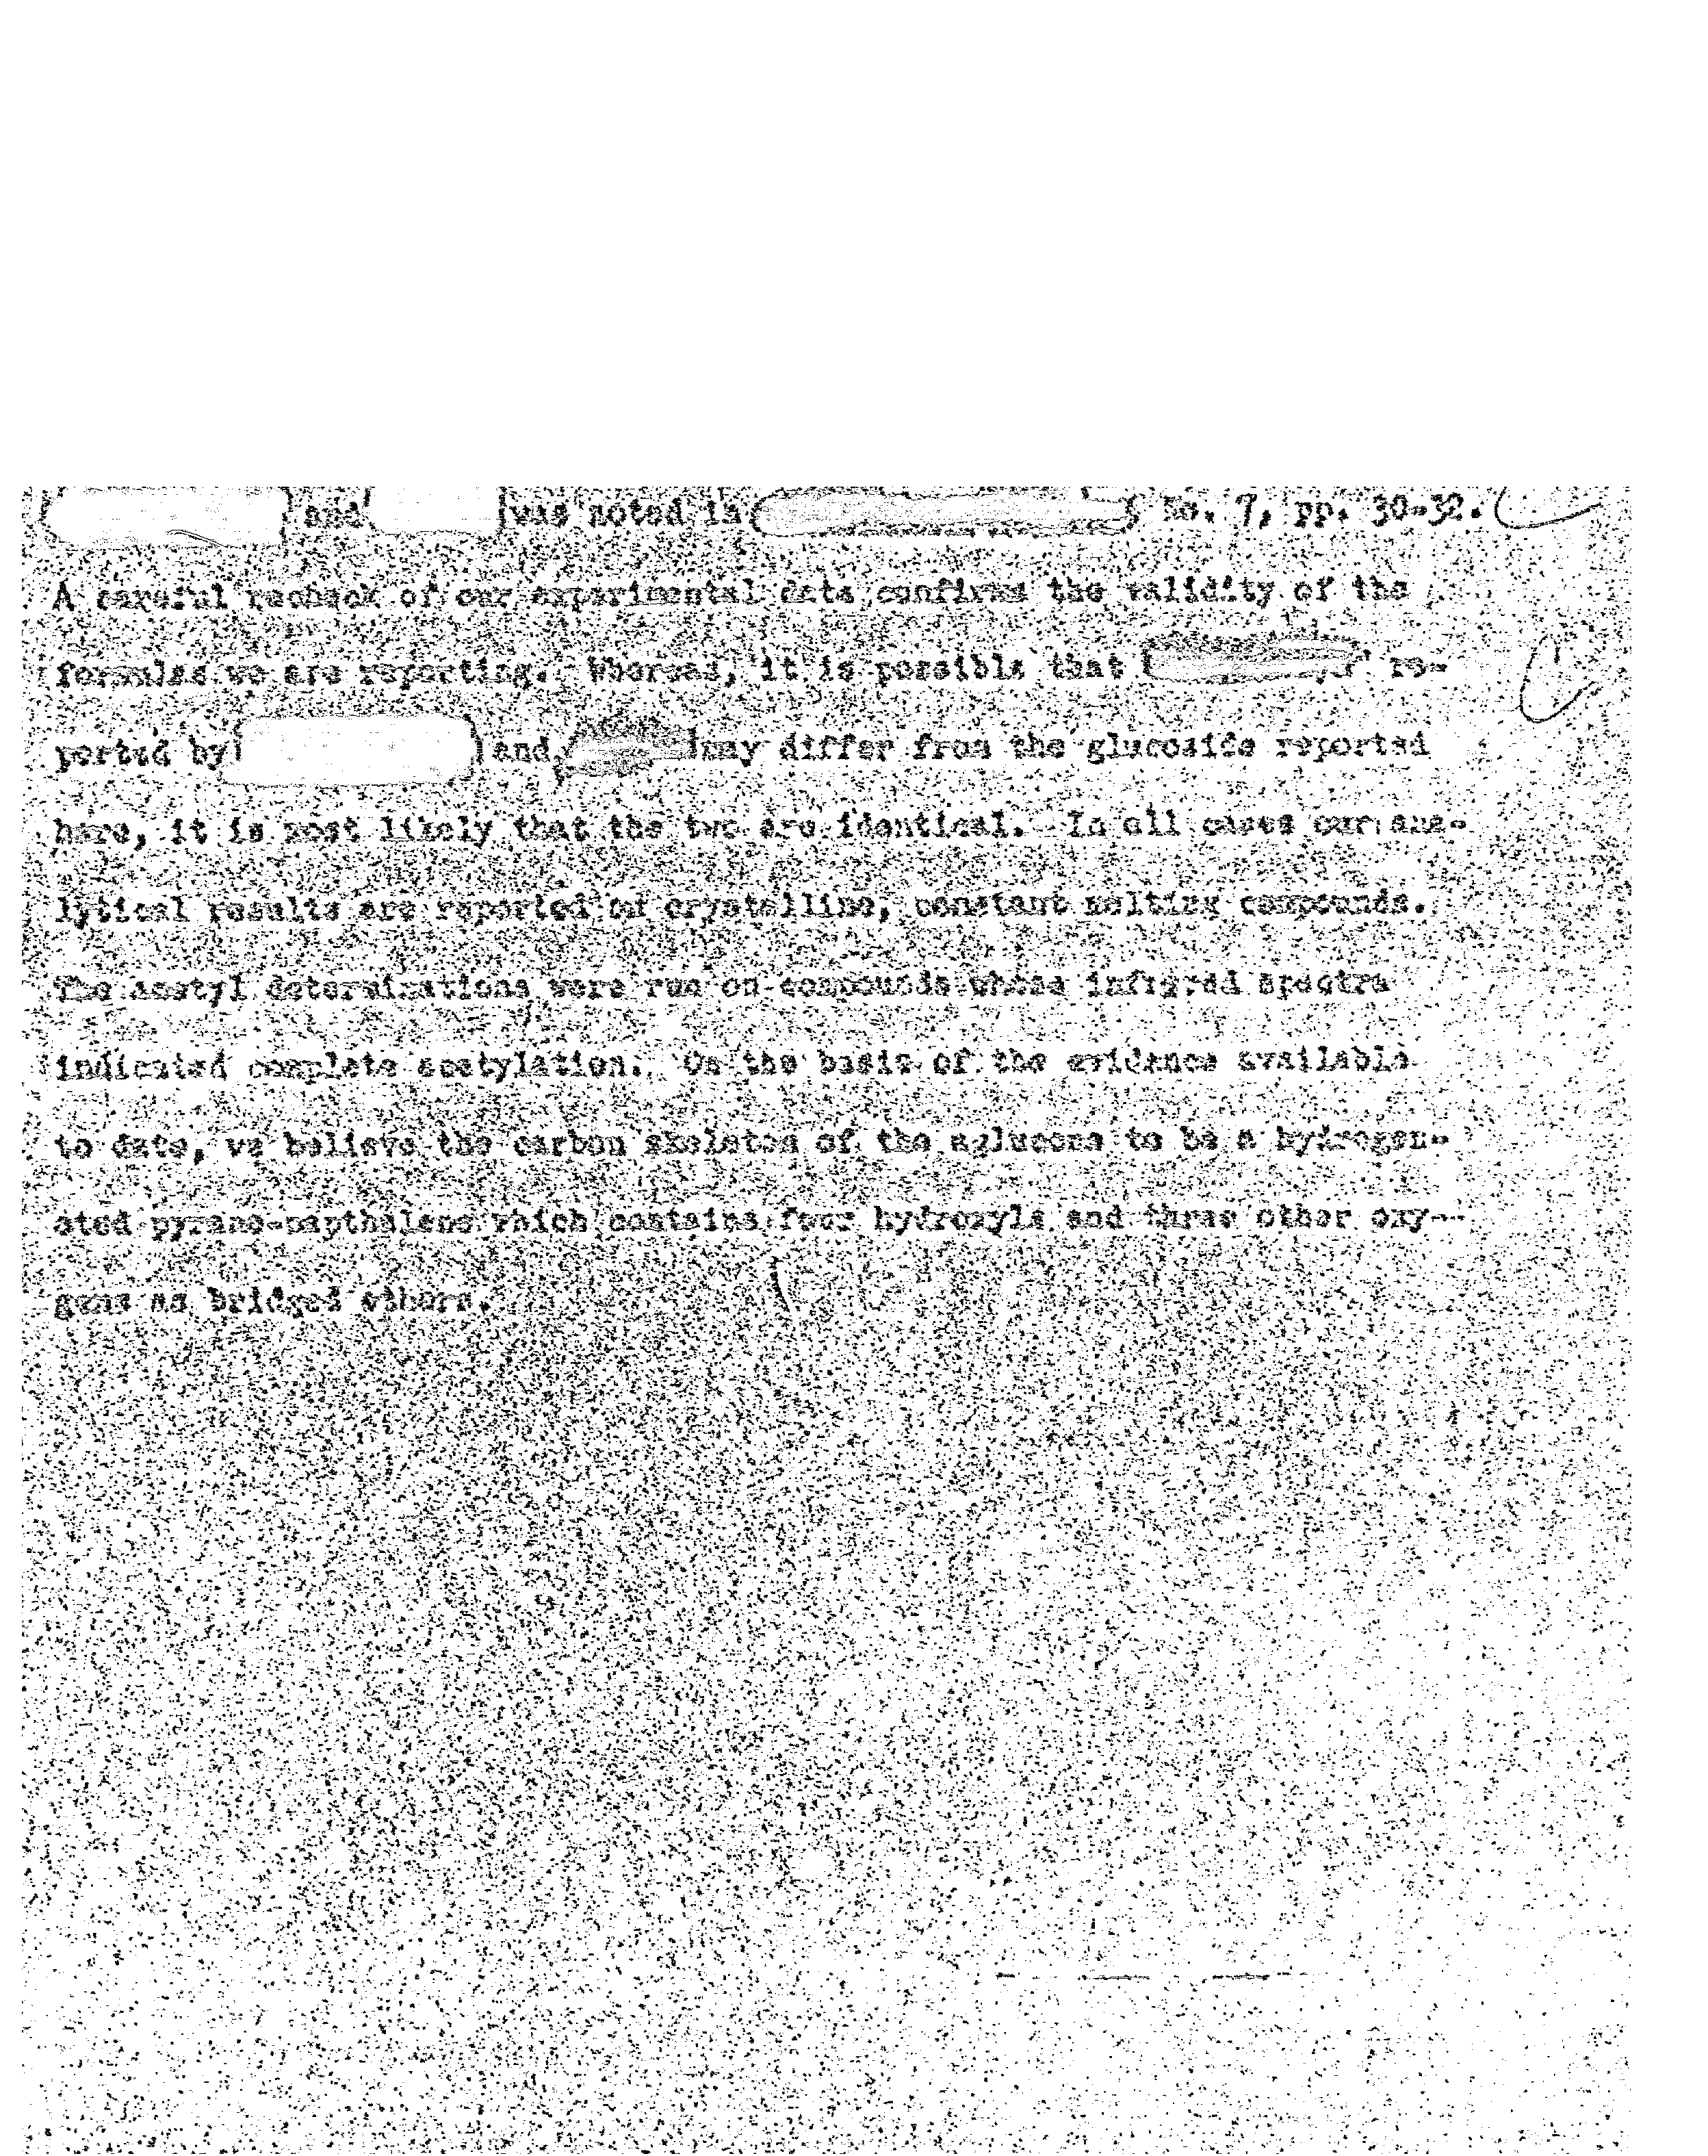 and was noted in No. 7, pp. 30-32.
A careful recheck of our experimental data confirms the validity of the
formulas we are reporting. Whereas, it is possible that re-
ported by and may differ from the glucoside reported
here, it is most likely that the two are identical. In all cases our ana-
lytical results are reported of crystalline, constant melting compounds.
The acetyl determinations were run on compounds whose infrared spectra
indicated complete acetylation. On the basis of the evidence available
to date, we believe the carbon skeleton of the aglucone to be a hydrogen-
ated pyrano-napthalene which contains four hydroxyls and three other oxy-
gens as bridged ethers.